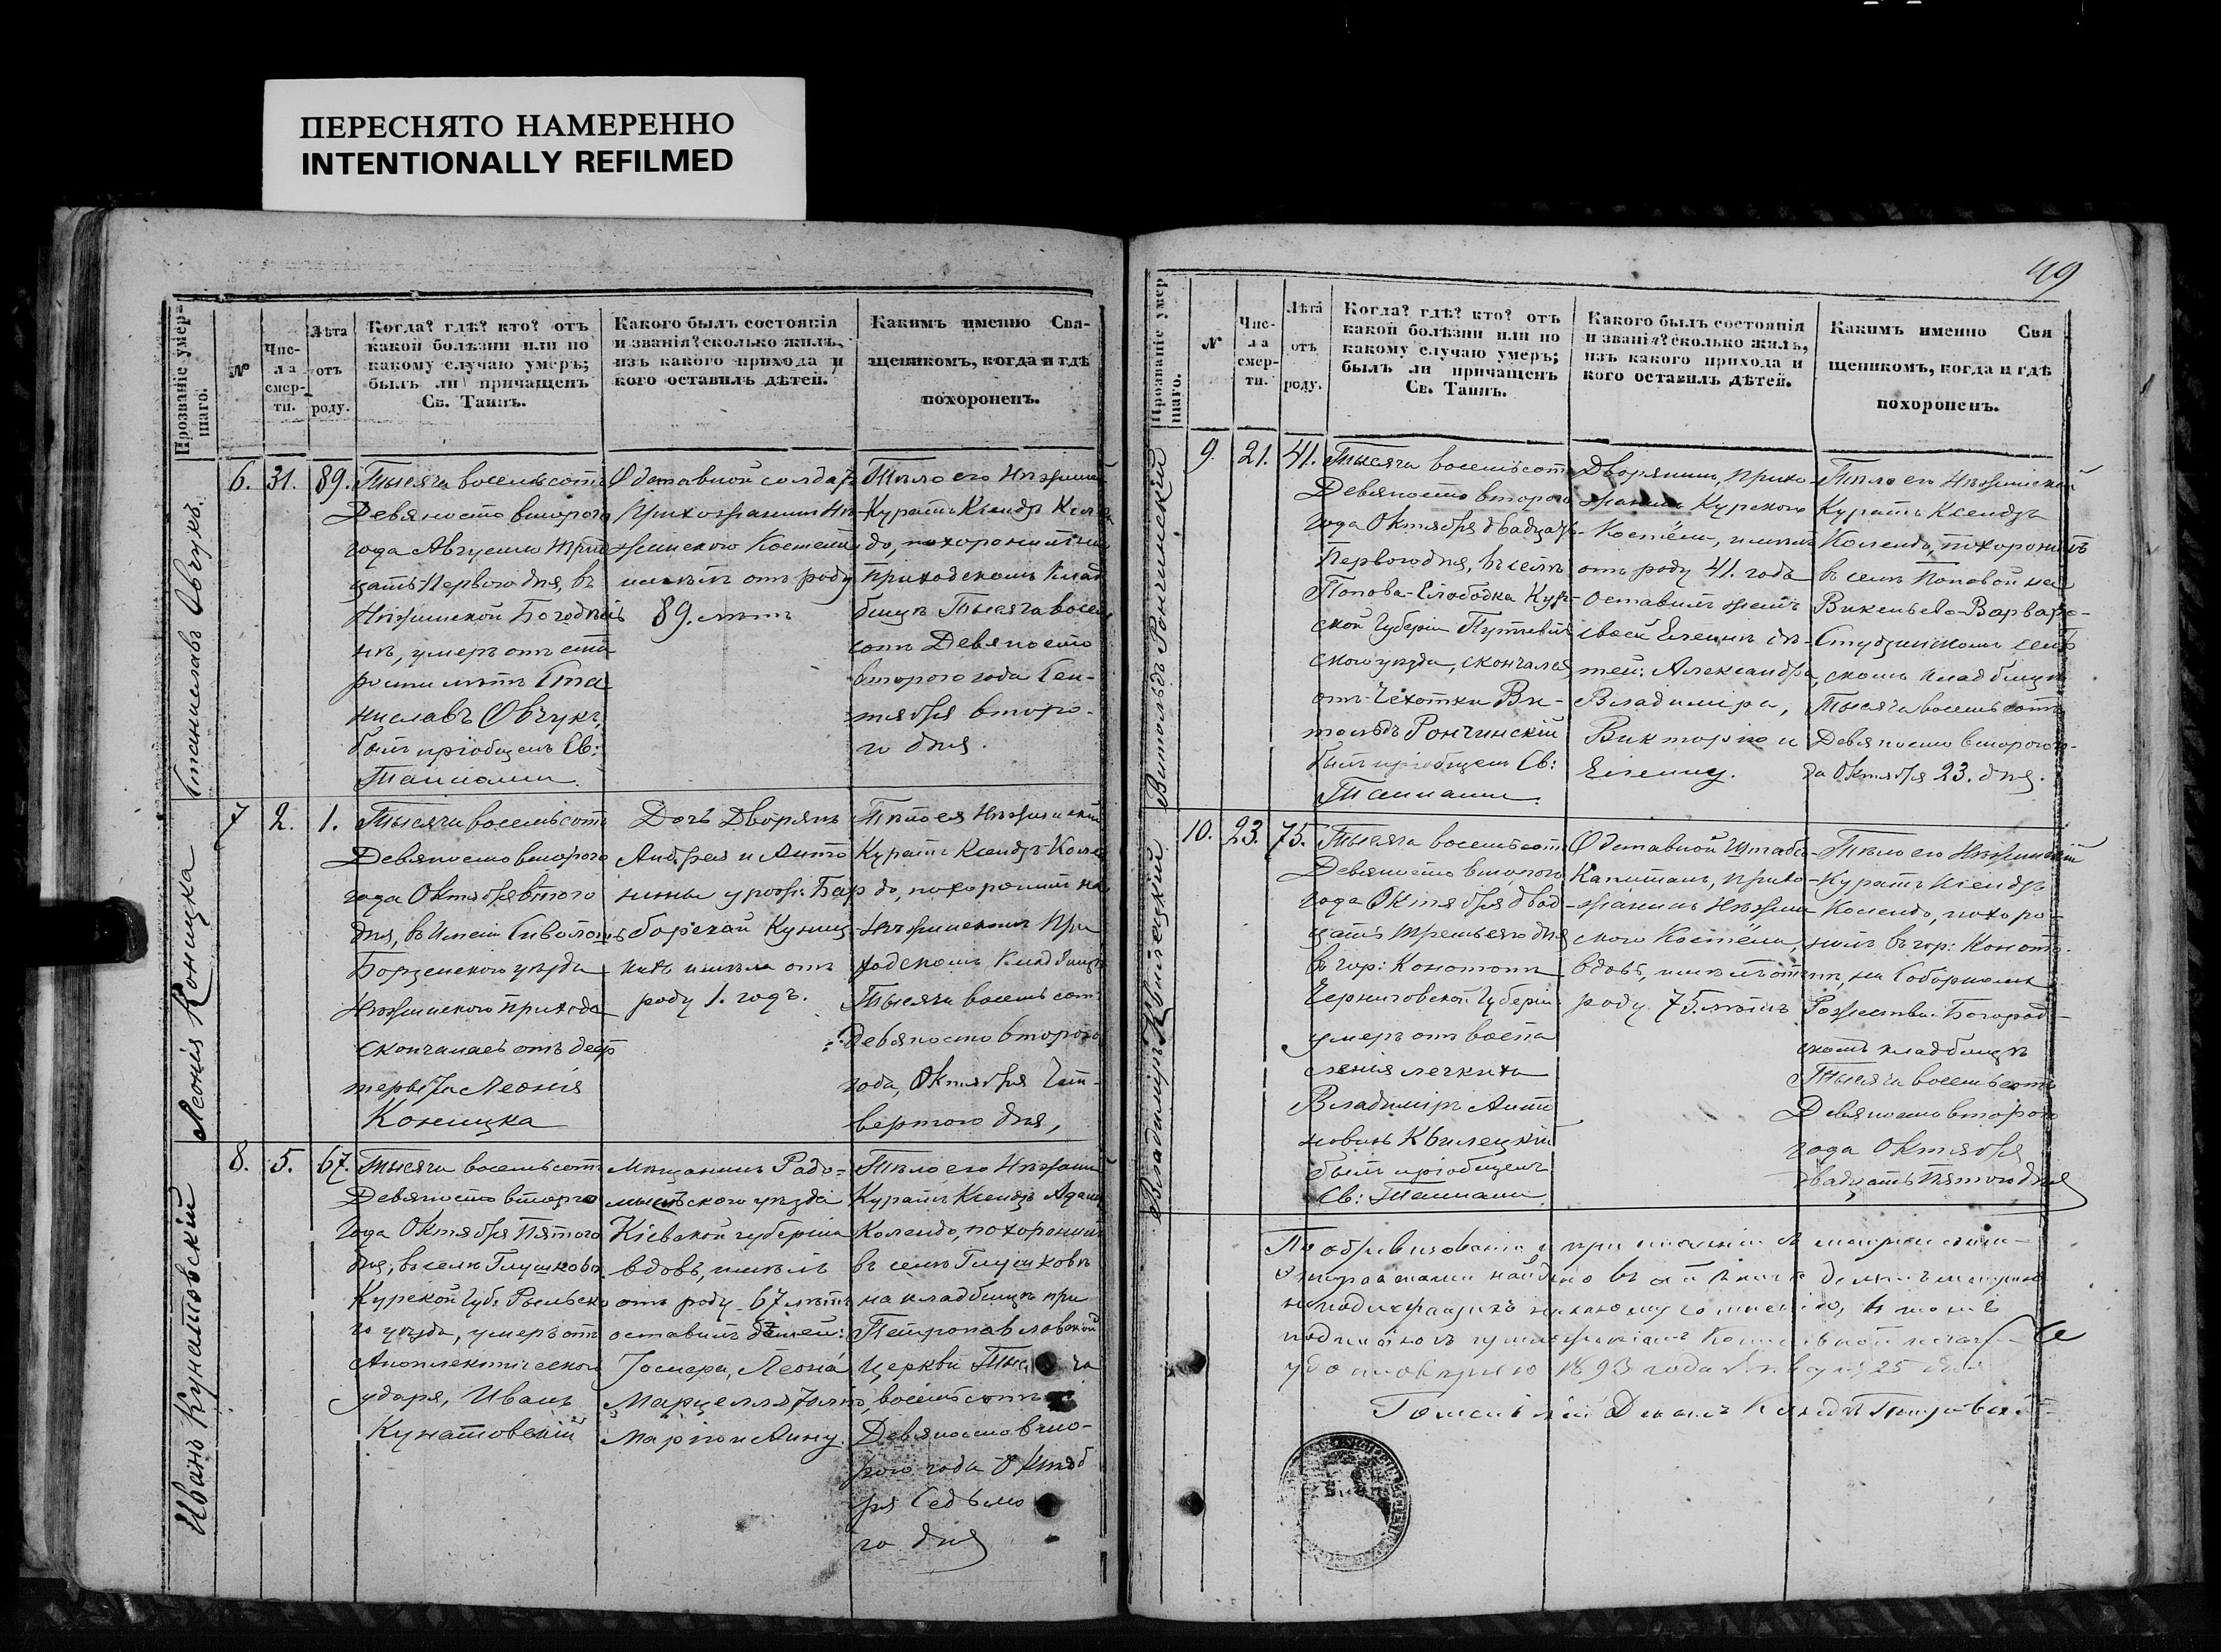 ПЕРЕСНЯТО НАМЕРЕННО
INTENTIONALLY REFILMED
Прозваніе умер-
шаго.
№
Чис-
ла
смер-
ти.
Лѣта
отъ
роду.
Когда? гдѣ? кто? отъ
какой болѣзни или по
какому случаю умеръ;
былъ ли причащенъ
Св. Таинъ.
Какого былъ состоянія
и званія? сколько жилъ,
изъ какого прихода и
кого оставилъ дѣтей.
Какимъ именно Свя-
щенникомъ, когда и гдѣ
похороненъ.
Станиславъ Овчукъ.
6.
31.
89.
Тысяча восемьсотъ
Девяносто второго
года Августа трид
цать Перваго дня, въ
Нѣжинской Богодѣль
нѣ, умеръ отъ ста
рости лѣтъ Ста
ниславъ Овчукъ,
былъ пріобщенъ Св:
Тайнами.
Отставной солдатъ
Прихожанинъ Нѣ-
жинскаго Костела
имѣлъ отъ роду
89. лѣтъ
Тѣло его Нѣжинскій
Куратъ Ксендзъ Колен
до, похоронилъ на
Приходскомъ Клад
бищѣ Тысяча восемь
сотъ Девяносто
второго года Сен-
тября второ-
го дня.
Леонія Коницка
7
2.
1.
Тысяча восемьсотъ
Девяносто второго
года Октября второго
дня, въ Имѣн. Сиволожъ
Борзенскаго уѣзда
Нѣжинскаго прихода
скончалась отъ диф
терыта Леонія
Коницка
Дочь Дворянъ
Андрея и Анто
нины урожд: Бар
Тѣло ея Нѣжинскій
Куратъ Ксендзъ Колен
до, похоронилъ на
Нѣжинскомъ При
ходскомъ Кладбищѣ
Тысяча восемьсотъ
Девяносто второго
года, Октября Чет-
вертого дня,
имѣла отъ
роду 1. годъ.
Иванъ Кунатовскій
8.
5.
67.
Тысяча восемьсотъ
Девяносто второго
года Октября Пятого
дня, въ селѣ Глушково
Курской Губ: Рыльска
го уѣзда, умеръ отъ
Апоплектическаго
удара, Иванъ
Кунатовскій
Мѣщанинъ Радо-
мысльского уѣзда
Кіевской губерніи
вдовъ, имѣлъ
отъ роду 67 лѣтъ
оставилъ дѣтей:
Іосифа, Леона,
Марію и Анну.
Тѣло его Нѣжинскій
Куратъ Ксендзъ Адамъ
Колендо, похоронилъ
въ селѣ Глушковѣ
на кладбищѣ при
Петропавловской
Церкви Тысяча
восемьсотъ
Девяносто вто-
рого года Октяб
ря Седьмо
го дня
49
Прозваніе умер
шаго.
№
Чис-
ла
смер-
ти.
Лѣта
отъ
роду.
Когда? гдѣ? кто? отъ
какой болѣзни или по
какому случаю умеръ;
былъ ли причащенъ
Св. Таинъ.
Какого былъ состоянія
и званія? сколько жилъ,
изъ какого прихода и
кого оставилъ дѣтей.
Какимъ именно Свя
щенникомъ, когда и гдѣ
похороненъ.
Витольдъ Рончинскій
9.
21.
41.
Тысяча восемьсотъ
Девяносто второго
года Октября двадцать
Первого дня, въ селѣ
Попова-Слободка Кур-
ской Губерніи Путивль
ского уѣзда, скончался
отъ Чахотки Ви-
тольдъ Рончинскій
былъ пріобщенъ Св:
Тайнами.
Дворянинъ, прихо-
жанинъ Курскаго
Костёла, имѣлъ
отъ роду 41. года
Оставилъ женѣ
своей Еленѣ дѣ-
тей: Александра,
Владимира,
Викторію и
Елену.
Тѣло его Нѣжинскій
Куратъ Ксендзъ
Колендо, похоронилъ
въ селѣ Поповой на
скомъ кладбищѣ
Тысяча восемьсотъ
Девяносто второго го-
да Октября 23. дня.
Владимиръ Квилецкій
10.
23.
75.
Тысяча восемьсотъ
Девяносто второго
года Октября двад-
цать третьяго дня
въ гор: Конотопѣ
Черниговской Губерніи
умеръ отъ воспа
ленія легкихъ
Владимиръ Анто
новичъ Квилецкій
былъ пріобщенъ
Св: Тайнами.
Отставной Штабсъ-
Капитанъ, прихо-
жанинъ Нѣжин
скаго Костёла,
вдовъ, имѣлъ отъ
роду 75. лѣтъ
Тѣло его Нѣжинскій
Куратъ Ксендзъ
Колендо, похоро-
нилъ въ гор: Коното-
пѣ, на Соборномъ
Рождества-Богород-
скомъ кладбищѣ
Тысяча восемьсотъ
Девяносто второго
года Октября
двадцать Пятого дня
1893 года 25 дня
Деканъ Ксендзъ